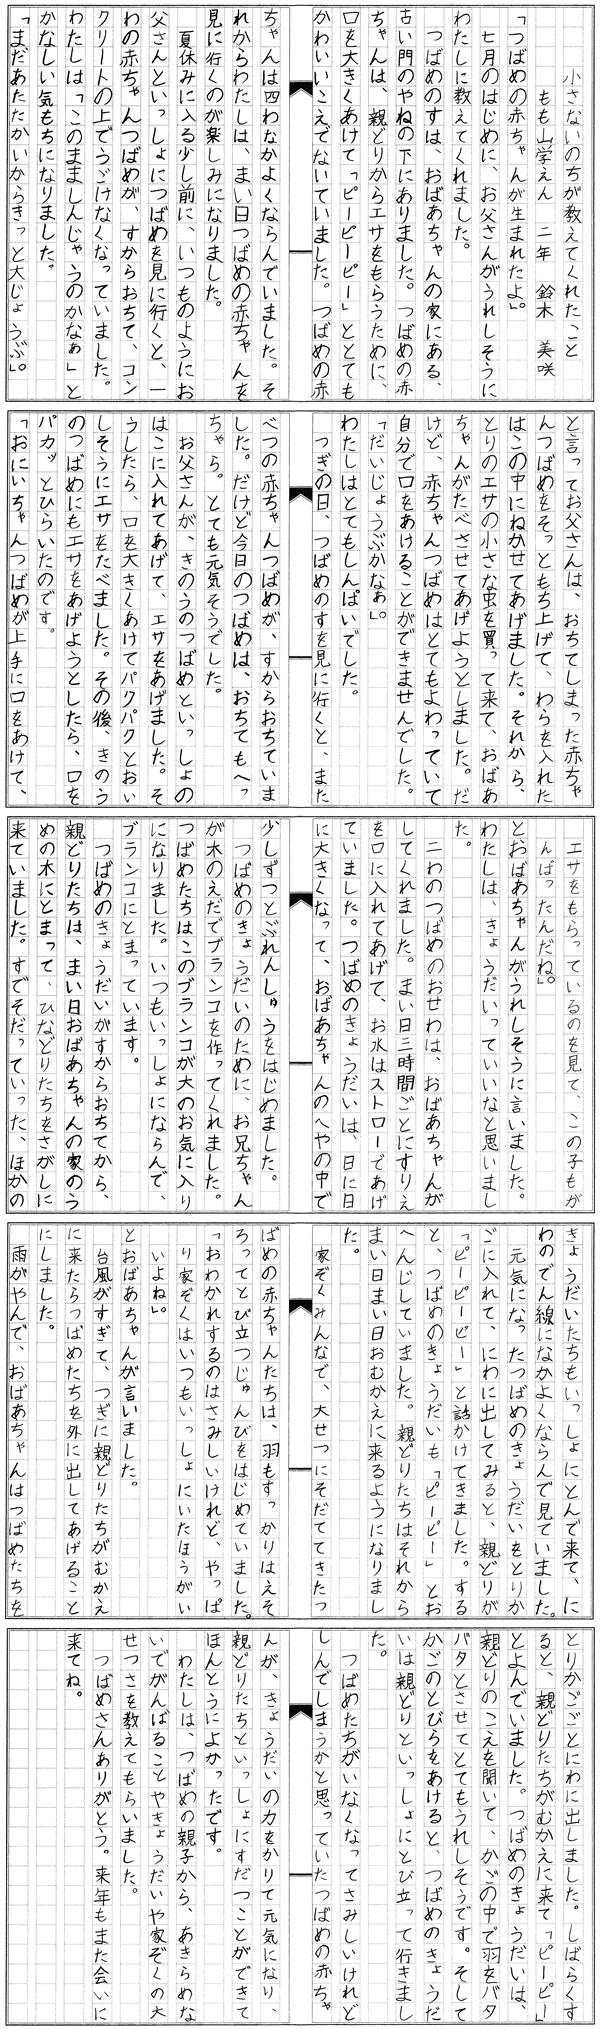 小さないのちが教えてくれたこと
もも山学えん　二年　鈴木　美咲
「つばめの赤ちゃんが生まれたよ」
七月のはじめに、お父さんがうれしそうに
わたしに教えてくれました。
つばめのすは、おばあちゃんの家にある、
古い門のやねの下にありました。つばめの赤
ちゃんは、親どりからエサをもらうために、
口を大きくあけて「ピーピーピー」ととても
かわいいこえでないていました。つばめの赤
ちゃんは四わなかよくならんでいました。そ
れからわたしは、まい日つばめの赤ちゃんを
見に行くのが楽しみになりました。
夏休みに入る少し前に、いつものようにお
父さんといっしょにつばめを見に行くと、一
わの赤ちゃんつばめが、すからおちて、コン
クリートの上でうごけなくなっていました。
わたしは「このまましんじゃうのかなぁ」と
かなしい気もちになりました。
「まだあたたかいからきっと大じょうぶ」。
と言ってお父さんは、おちてしまった赤ちゃ
んつばめをそっともち上げて、わらを入れた
はこの中にねかせてあげました。それから、
とりのエサの小さな虫を買って来て、おばあ
ちゃんがたべさせてあげようとしました。だ
けど、赤ちゃんつばめはとてもよわっていて
自分で口をあけることができませんでした。
「だいじょうぶかなぁ」。
わたしはとてもしんぱいでした。
つぎの日、つばめのすを見に行くと、また
べつの赤ちゃんつばめが、すからおちていま
した。だけど今日のつばめは、おちてもへっ
ちゃら。とても元気そうでした。
お父さんが、きのうのつばめといっしょの
はこに入れてあげて、エサをあげました。そ
うしたら、口を大きくあけてパクパクとおい
しそうにエサをたべました。その後、きのう
のつばめにもエサをあげようとしたら、口を
パカッとひらいたのです。
「おにいちゃんつばめが上手に口をあけて、
エサをもらっているのを見て、この子もが
んばったんだね。
とおばあちゃんがうれしそうに言いました。
わたしは、きょうだいっていいなと思いまし
た。
二わのつばめのおせわは、おばあちゃんが
してくれました。まい日三時間ごとにすりえ
を口に入れてあげて、お水はストローであげ
ていました。つばめのきょうだいは、日に日
に大きくなって、おばあちゃんのへやの中で
少しずつとぶれんしゅうをはじめました。
つばめのきょうだいのために、お兄ちゃん
が木のえだでブランコを作ってくれました。
つばめたちはこのブランコが大のお気に入り
になりました。いつもいっしょにならんで、
ブランコにとまっています。
つばめのきょうだいがすからおちてから、
親どりたちは、まい日おばあちゃんの家のう
めの木にとまって、ひなどりたちをさがしに
来ていました。すでそだっていった、ほかの
きょうだいたちもいっしょにとんで来て、に
わのでん線になかよくならんで見ていました。
元気になったつばめのきょうだいをとりか
ごに入れて、にわに出してみると、親どりが
「ピーピーピー」と話かけてきました。する
と、つばめのきょうだいも「ピーピー」とお
へんじしていました。親どりたちはそれから
まい日まい日おむかえに来るようになりまし
た。
家ぞくみんなで、大せつにそだててきたつ
ばめの赤ちゃんたちは、羽もすっかりはえそ
ろってとび立つじゅんびをはじめていました。
「おわかれするのはさみしいけれど、やっぱ
り家ぞくはいつもいっしょにいたほうがい
いよね」。
とおばあちゃんが言いました。
台風がすぎて、つぎに親どりたちがむかえ
に来たらつばめたちを外に出してあげること
にしました。
雨がやんで、おばあちゃんはつばめたちを
とりかごごとにわに出しました。しばらくす
ると、親どりたちがむかえに来て「ピーピー」
とよんでいました。つばめのきょうだいは、
親どりのこえを聞いて、かごの中で羽をバタ
バタとさせてとてもうれしそうです。そして
かごのとびらをあけると、つばめのきょうだ
いは親どりといっしょにとび立って行きまし
た。
つばめたちがいなくなってさみしいけれど
しんでしまうかと思っていたつばめの赤ちゃ
んが、きょうだいの力をかりて元気になり、
親どりたちといっしょにすだつことができて
ほんとうによかったです。
わたしは、つばめの親子から、あきらめな
いでがんばることやきょうだいや家ぞくの大
せつさを教えてもらいました。
つばめさんありがとう。来年もまた会いに
来てね。